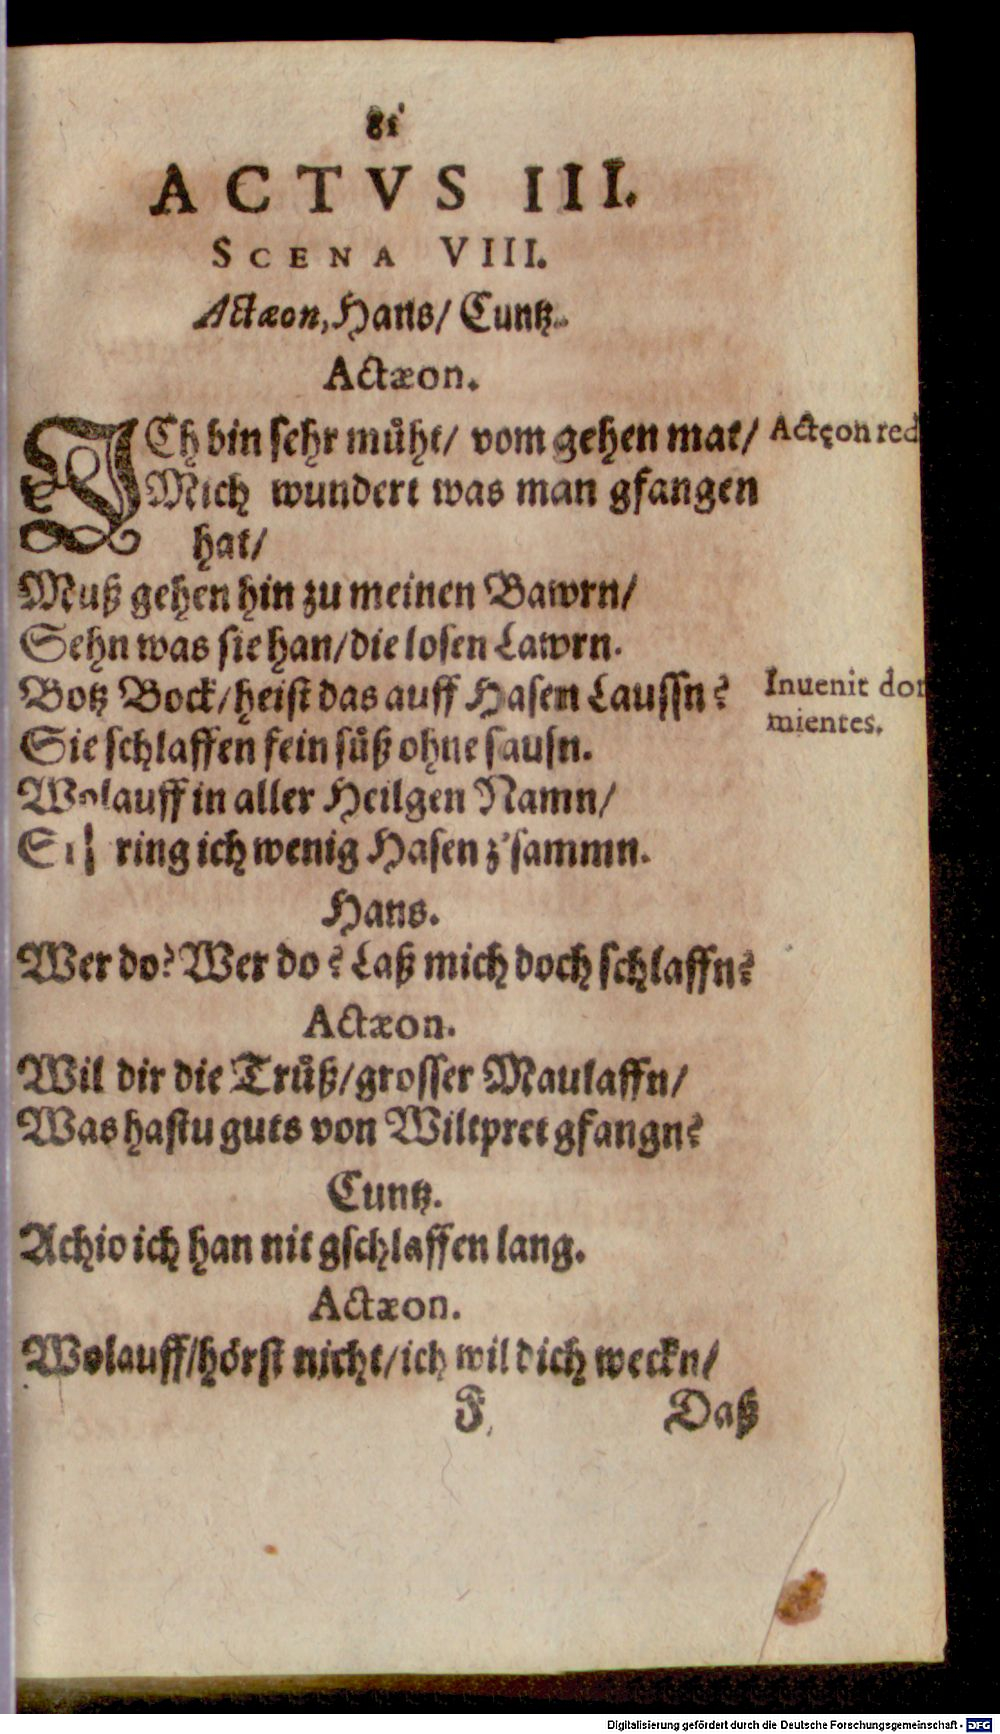 81
ACTVS III.
SCENA VIII.
Actæon, Hans/ Cuntz.
Actæon.
ICh bin sehr müht/ vom gehen mat/ Actęon red
Mich wundert was man gfangen
hat/
Muß gehen hin zu meinen Bawrn/
Sehn was sie han/die losen Lawrn.
Botz Bock/heist das auff Hasen Laussn? Inuenit dor
mientes.
Sie schlaffen fein süß ohne sausn.
Wolauff in aller Heilgen Namn/
ring ich wenig Hasen z'sammn.
Hans.
Wer do? Wer do? Laß mich doch schlaffn?
Actæon.
Wil dir die Trüß/grosser Maulaffn/
Was hastu guts von Wiltpret gfangn?
Cuntz.
Achio ich han nit gschlaffen lang.
Actæon.
Wolauff/hörst nicht/ich wil dich weckn/
F Daß
Digitalisierung gefördert durch die Deutsche Forschungsgemeinschaft - DFG